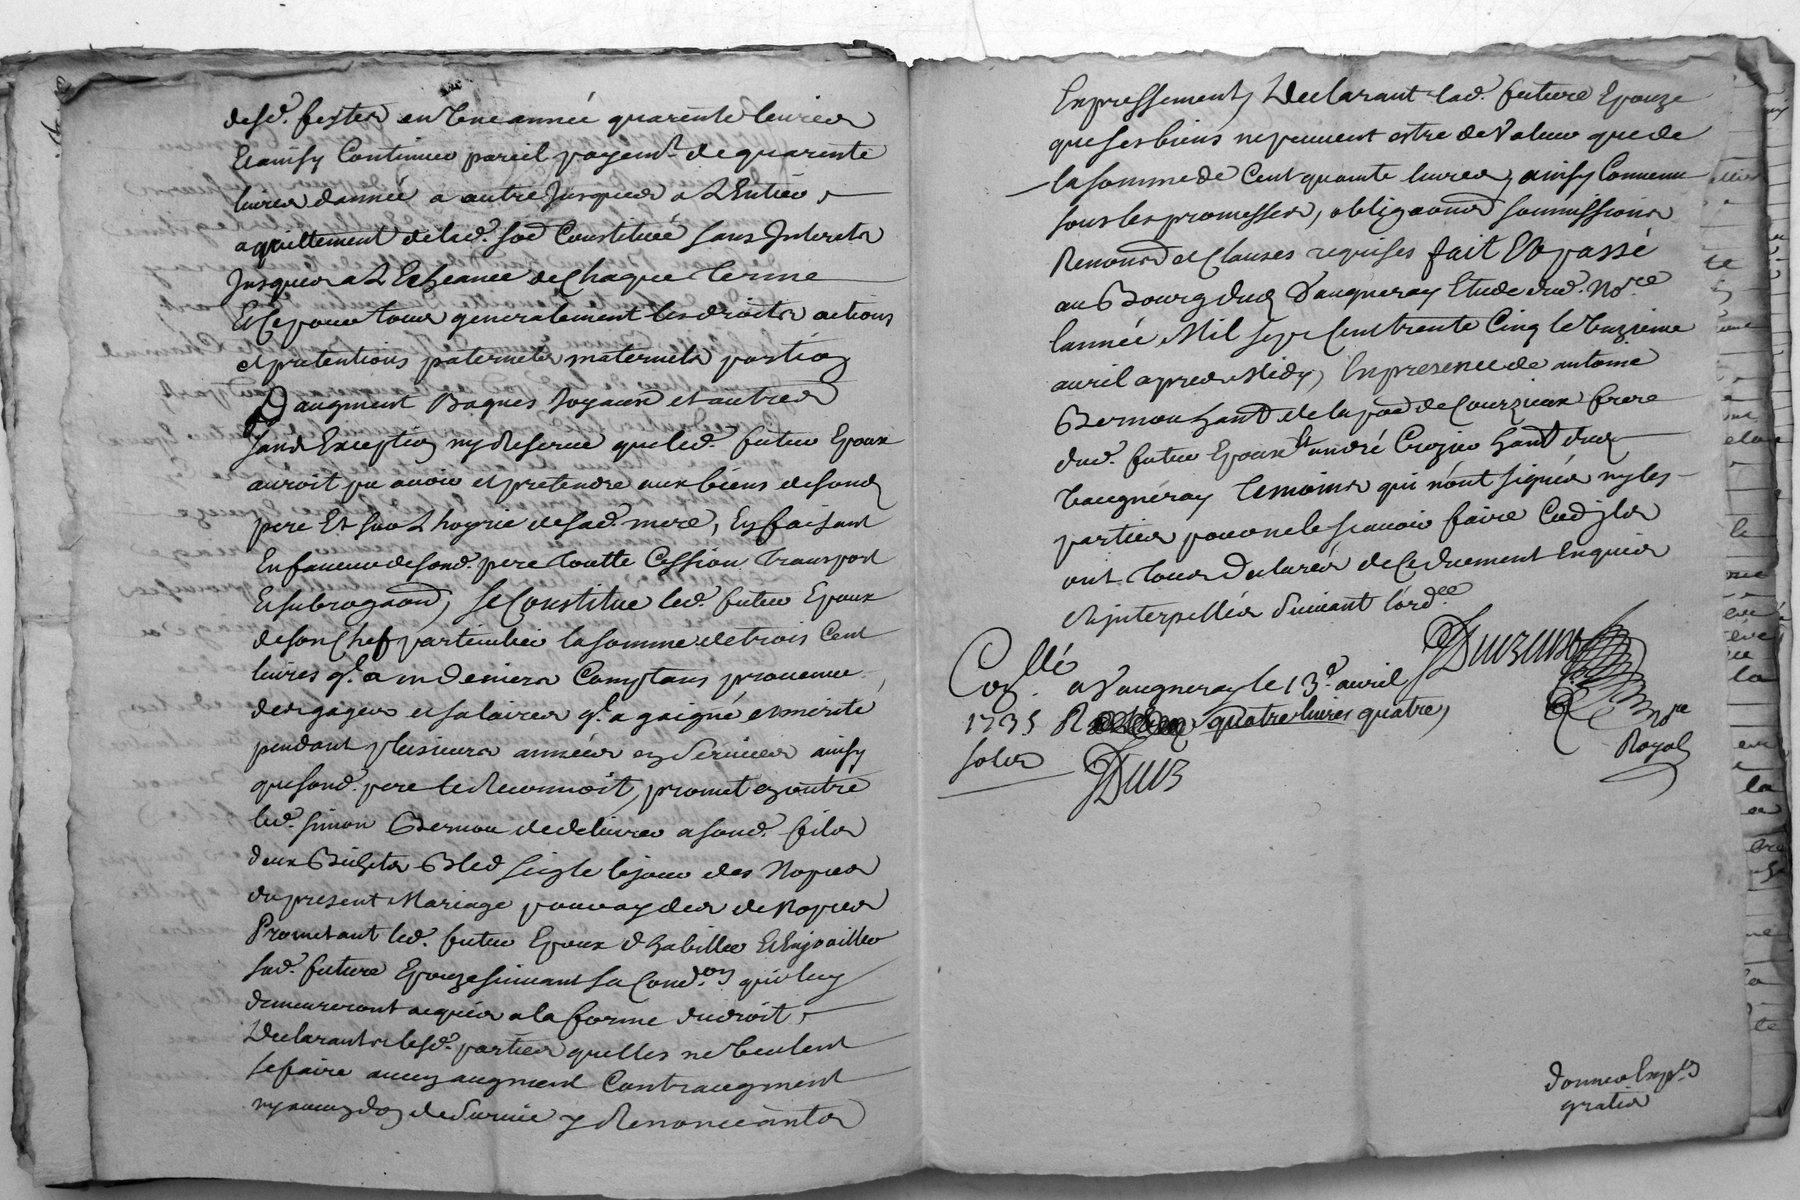 desd. festes en Une année quarente livres
Et ainsy Continuer pareil payemt. de quarente
livres dannée a autre Jusques a L'Entier
aquittement de lad. sōe Constituée sans Interets
Jusques a L'Echeance de Chaque terme
Et Ce pour tous generalement les droits actions
et pretentions paternels maternels portion
D'augment Bagues Joyaux et autres
sans Exception ny Reserve que led. futur Epoux
auroit pu avoir et pretendre aux biens de sond
pere Et sur L'hoyrie de sad. mere, En faisant
En faveur de sond. pere toutte Cession transport
Et subrogaon, se Constitue led. futur Epoux
de son Chef particulier la somme de trois Cent
livres ql. a en deniers Comptans provenue
des gages et salaires ql. a gaigné et mérité
pendant plusieurs années en service ainsy
que sond. pere le Reconnoit, promet en outre
led. simon Bernou de delivrer a sond. fils
deux Bichets Bled seigle le jour des Nopces
du present Mariage pour aydes de Nopces
Prometant led. futur Epoux d'habiller Et Enjoailler
sad. future Epouze suivant sa Condon. qui luy
demeureront acquis a la forme du droit
Declarants lesd. parties quelles ne Veulent
se faire aucun augment Contraugment
ny aucun don de survie y Renonceants
Expressement, Declarant lad. future Epouze
que ses biens ne peuvent estre de Valeur que de
la somme de Cent quarente livres, ainsy Convenu
sous les promesses, obligaons soumissions
Renons et Clauses requises fait Et passé
au Bourg dud Vaugneray Etude dud. Nore
lannée Mil sept Cent trente Cinq le treizieme
avril apres Midy, En presence de antoine
Bernou hant de la poe de Courzieux frere
dud. futur Epoux Et andré Crozier hant dud
Vaugneray temoins qui n'ont signés ny les
parties pour ne le scavoir faire Co'e ils
ont tous Declarés de Ce duement Enquis
et interpellés suivant lordce
Duzun
Nre
Royal
Conllé
a Vaugneray le 13e. avril
1735 R quatre livres quatre
sols
DuZ
donner
gratis